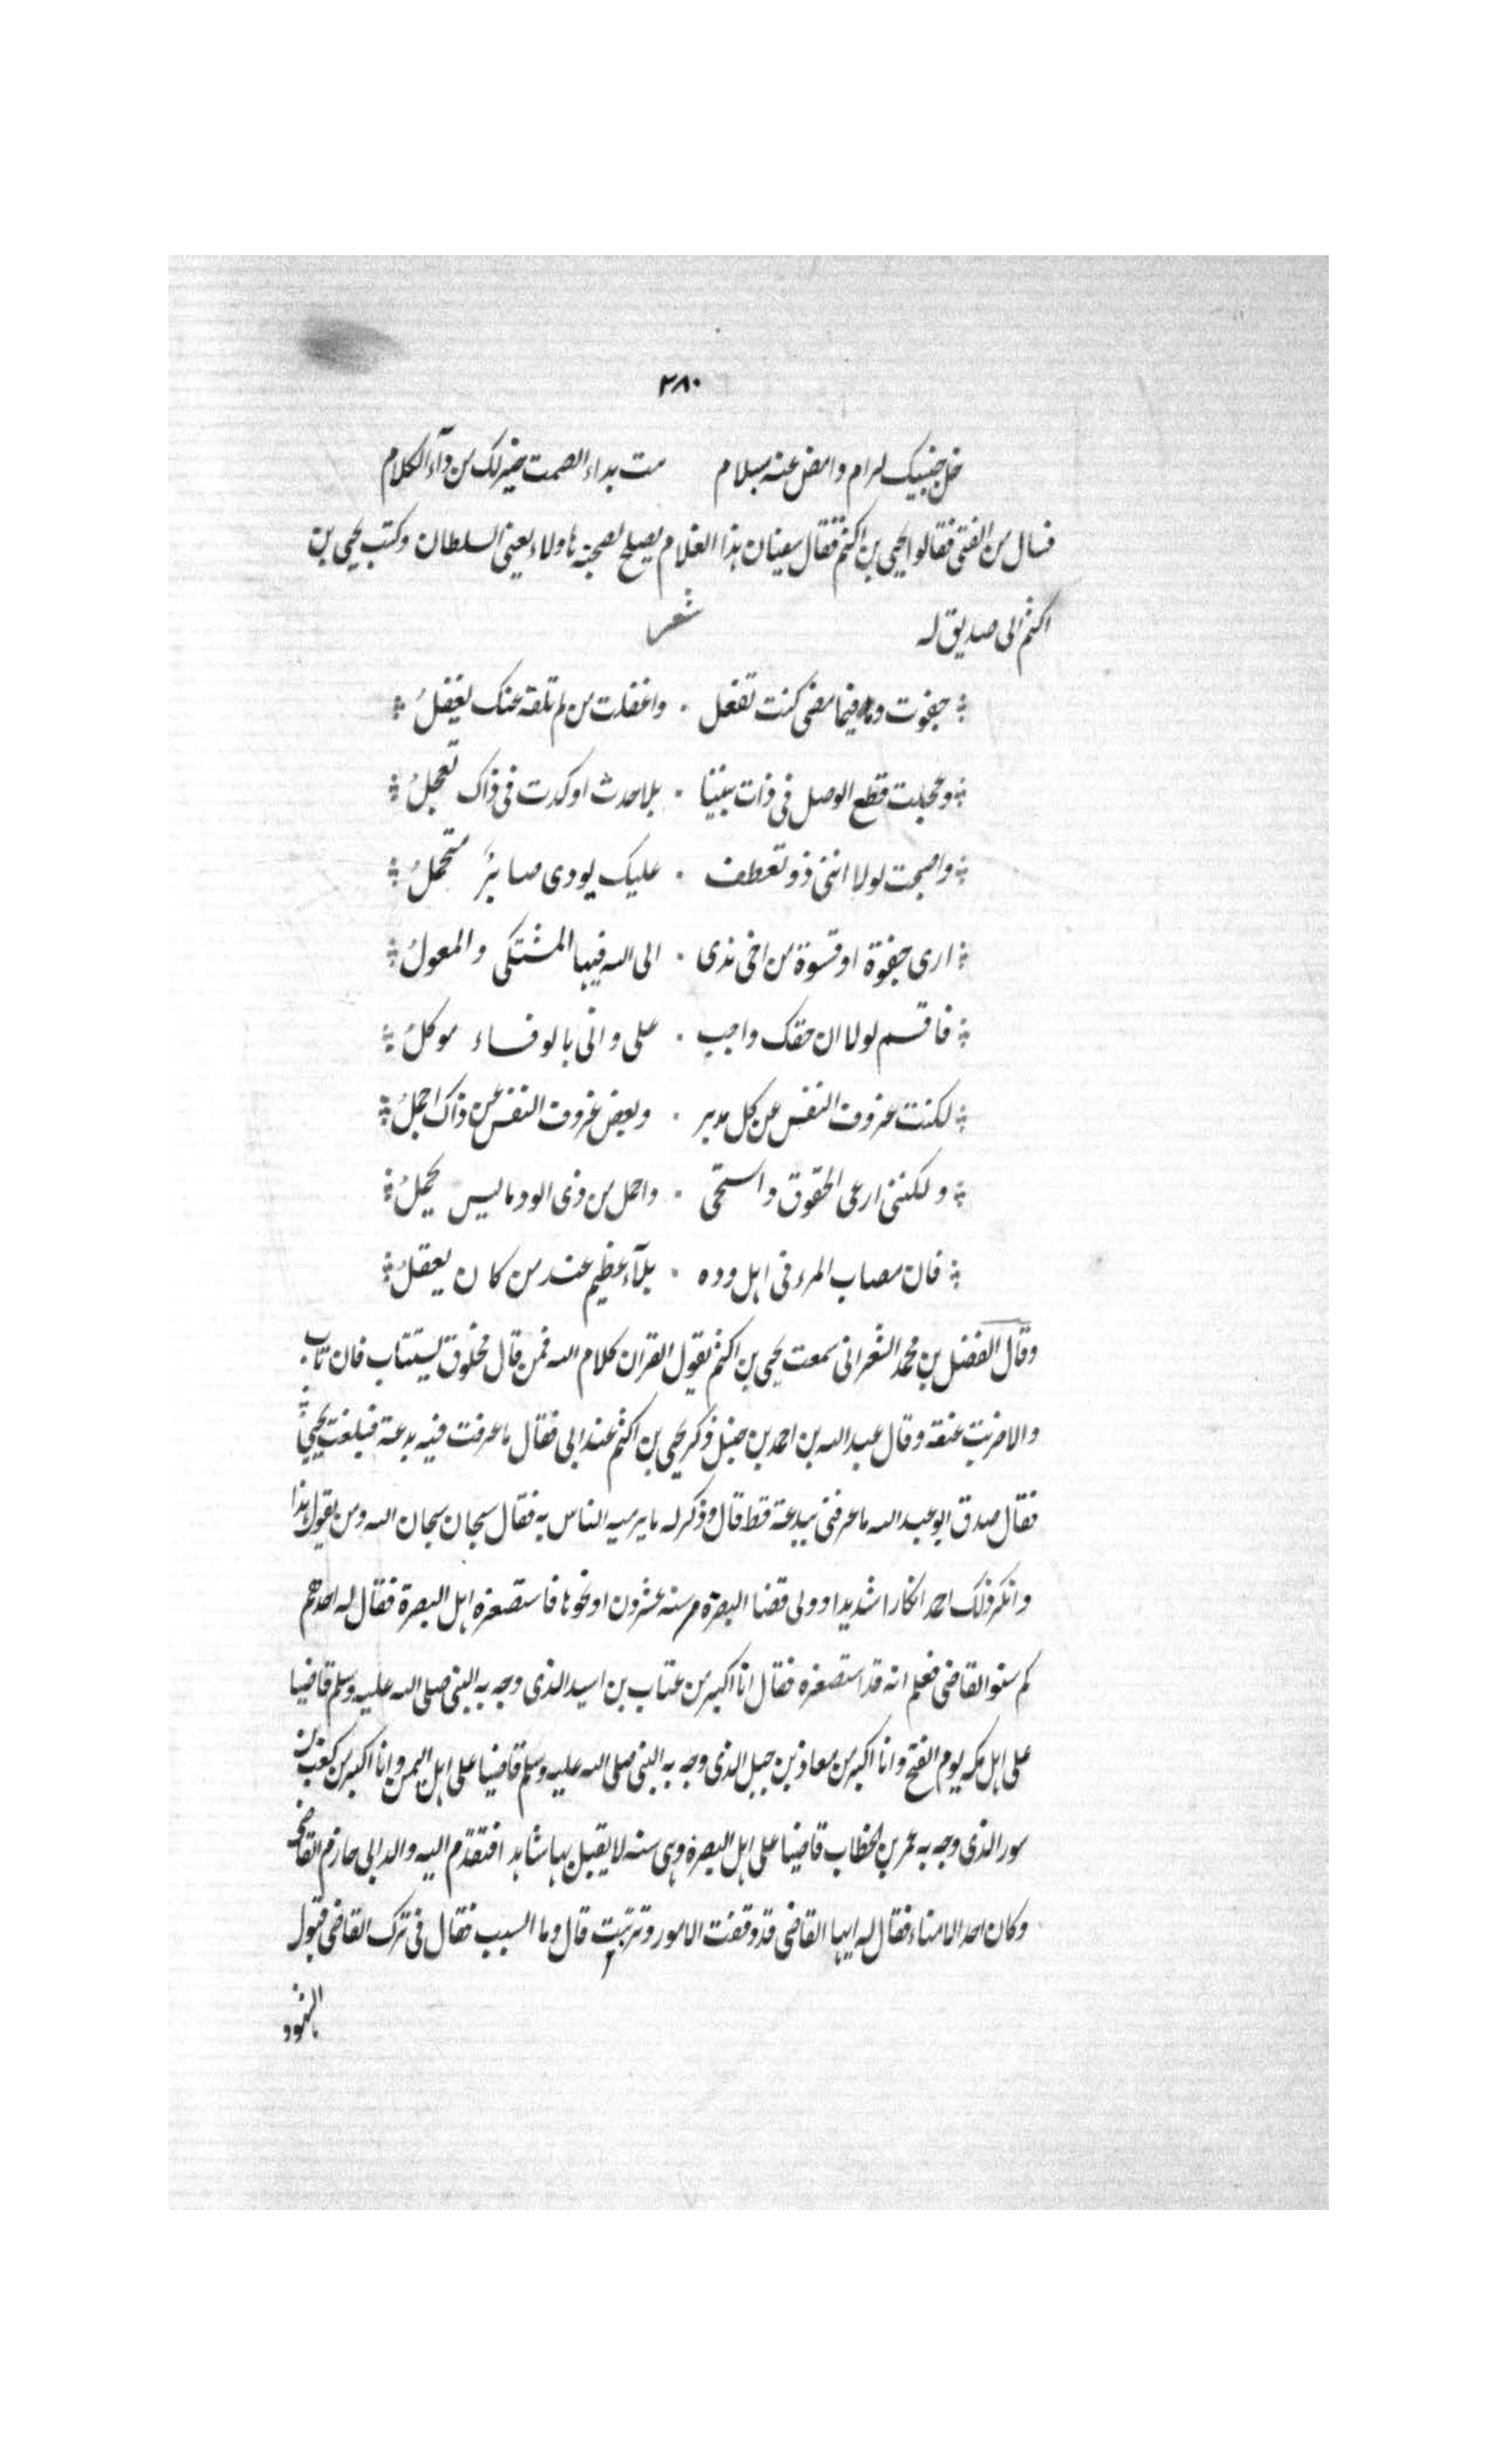 ٣٨٠
خل جنبيك لرام وامض عنه بسلام مت بداء الصمت خير لك من دآء الكلام
فسال من الفتى فقالوا يحيى بن اكثم فقال سفيان هذا الغلام يصلح لصحبة هاولاء يعنى السلطان وكتب يحيى بن
اكثم الى صديق له شعر
جفوت وما فيما مضى كنت تفعل واغفلت من لم تلقه عنك يغفل
وعجلت قطع الوصل فى ذات بيننا بلا حدث او كدت فى ذاك تعجل
واصبحت لولا اننى ذو تعطف عليك بودى صابر متحمل
ارى جفوة او قسوة من اخى ندى الى الله فيها المشتكى والمعول
فاقسم لولا ان حقك واجب على وانى بالوفاء موكل
لكنت عزوف النفس عن كل مدبر وبعض عزوف النفس عن ذاك اجمل
ولكننى ارعى الحقوق واستحى واحمل من ذى الود ما ليس يحمل
فان مصاب المرء فى اهل وده بلآء عظيم عند من كان يعقل
وقال الفضل بن محمد الشعرانى سمعت يحيى بن اكثم يقول القران كلام الله فمن قال مخلوق يستتاب فان تاب
والا ضربت عنقه وقال عبد الله بن احمد بن حنبل ذكر يحيى بن اكثم عند ابى فقال ما عرفت فيه بدعة فبلغت يحيى
فقال صدق ابو عبد الله ما عرفنى ببدعة قط قال وذكر له ما يرميه الناس به فقال سبحان سبحان الله ومن يقول هذا
وانكر ذلك احمد انكارا شديدا وولى قضا البصرة سنه عشرون او نحوها فاستصغره اهل البصرة فقال له احدهم
كم سنو القاضى فعلم انه قد استصغره فقال انا اكبر من عتاب بن اسيد الذى وجه به النبى صلى الله عليه وسلم قاضيا
على اهل مكه يوم الفتح وانا اكبر من معاذ بن جبل الذى وجه به النبى صلى الله عليه وسلم قاضيا على اهل اليمن وانا اكبر من كعب بن
سور الذى وجه به عمر بن الخطاب قاضيا على اهل البصرة وبقى سنه لا يقبل بها شاهد افتقدم اليه والد ابى حازم القاضى
وكان احد الامناء فقال له ايها القاضى قد وقفت الامور وتريبت قال وما السبب فقال فى ترك القاضى قبول
الشهود